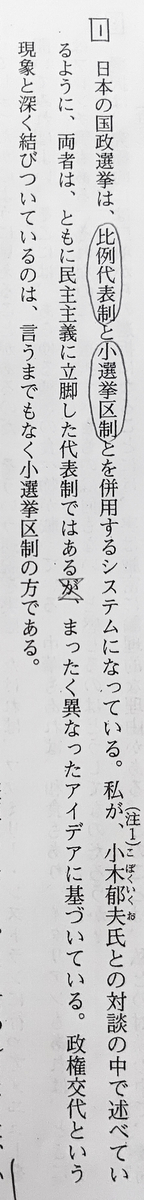 1 日本の国政選挙は、比例代表制と小選挙区制とを併用するシステムになっている。私が、(注1)小木郁夫氏との対談の中で述べてい
こぼくいくお
るように、両者は、ともに民主主義に立脚した代表制ではあるが、まったく異なったアイデアに基づいている。政権交代という
現象と深く結びついているのは、言うまでもなく小選挙区制の方である。